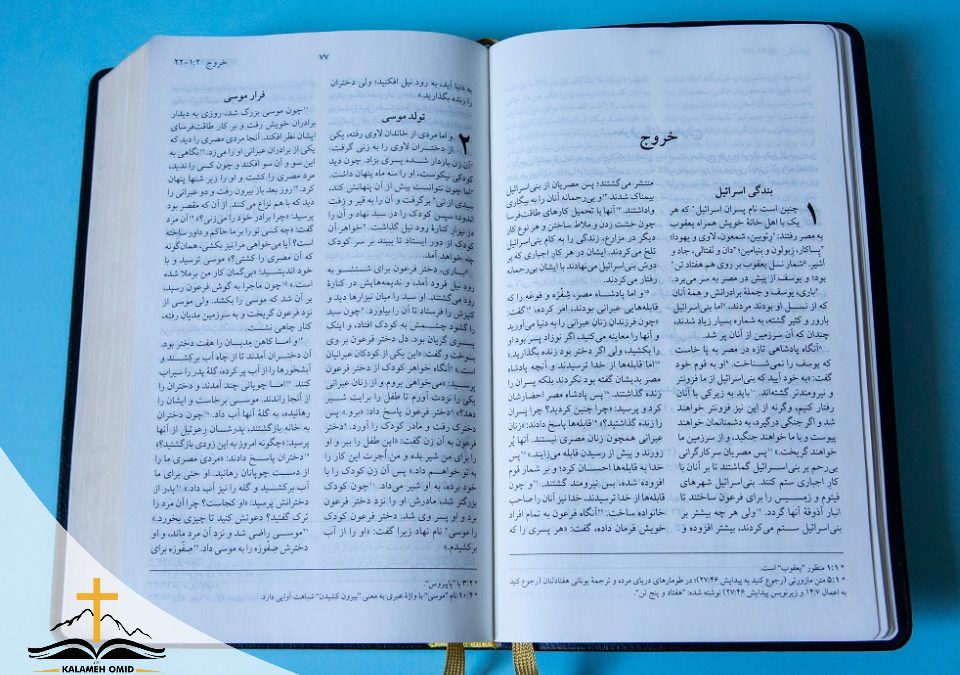 خروج
بندگی اسرائیل
۱ چنین است نام پسران اسرائیل* که هر
یک با اهل خانهٔ خویش همراه یعقوب
به مصر رفتند: ۲رِئوبین، شمعون، لاوی و یهودا؛
۳یساکار، زبولون و بنیامین؛ ۴دان و نفتالی، جاد و
اَشیر. ۵شمار نسل یعقوب بر روی هم هفتاد تن*
بود؛ و یوسف از پیش در مصر به سر می‌برد.
۶باری، یوسف و جملهٔ برادرانش و همهٔ آنان
که از نسل او بودند مردند، ۷اما بنی‌اسرائیل
بارور و کثیر گشته، به شماره بسیار زیاد شدند،
چندان که آن سرزمین از آنان پر شد.
۸آنگاه پادشاهی تازه در مصر به پا خاست
که یوسف را نمی‌شناخت. ۹او به قوم خود
گفت: «به خود آیید که بنی‌اسرائیل از ما فزونتر
و نیرومندتر گشته‌اند. ۱۰باید به زیرکی با آنان
رفتار کنیم، وگرنه از این نیز فزونتر خواهند
شد و اگر جنگی درگیرد، به دشمنانمان خواهند
پیوست و با ما خواهند جنگید، و از سرزمین ما
خواهند گریخت.» ۱۱پس مصریان سرکارگرانی
بی‌رحم بر بنی‌اسرائیل گماشتند تا بر آنان با
کار اجباری ستم کنند. بنی‌اسرائیل شهرهای
فیتوم و رَمِسیس را برای فرعون ساختند تا
انبار آذوقهٔ آنها گردد. ۱۲ولی هر چه بیشتر بر
بنی‌اسرائیل ستم می‌کردند، بیشتر افزوده و
منتشر می‌گشتند؛ پس مصریان از بنی‌اسرائیل
بیمناک شدند ۱۳و بی‌رحمانه آنان را به بیگاری
واداشتند. ۱۴آنها با تحمیل کارهای طاقت‌فرسا
چون خشت زدن و ملاط ساختن و هر نوع کار
دیگر در مزارع، زندگی را به کام بنی‌اسرائیل
تلخ می‌کردند. ایشان در هر کار اجباری که بر
دوش بنی‌اسرائیل می‌نهادند با ایشان بی‌رحمانه
رفتار می‌کردند.
۱۵و اما پادشاه مصر، شِفْرَه و فوعَه را که
قابله‌هایی عبرانی بودند، امر کرده، ۱۶گفت:
«چون فرزندان زنان عبرانی را به دنیا می‌آورید
و آنها را معاینه می‌کنید، اگر نوزاد پسر بود او
را بکشید، ولی اگر دختر بود زنده بگذارید.»
۱۷اما قابله‌ها از خدا ترسیدند و آنچه پادشاه
مصر بدیشان گفته بود نکردند بلکه پسران را
زنده گذاشتند. ۱۸پس پادشاه مصر احضارشان
کرد و پرسید: «چرا چنین کردید؟ چرا پسران
را زنده گذاشتید؟» ۱۹قابله‌ها پاسخ دادند: «زنان
عبرانی همچون زنان مصری نیستند. آنها پُر
زورند و پیش از رسیدن قابله می‌زایند.» ۲۰پس
خدا به قابله‌ها احسان کرد؛ و بر شمار قوم
افزوده شده، بس نیرومند گشتند. ۲۱و چون
قابله‌ها از خدا ترسیدند، خدا نیز آنان را صاحب
خانواده ساخت. ۲۲آنگاه فرعون به تمام افراد
خویش فرمان داده، گفت: «هر پسری را که
* ۱:۱ منظور "یعقوب" است.
* ۵:۱ متن مازورتی (رجوع کنید به پیدایش ۲۷:۴۶)؛ در طومارهای دریای مرده و ترجمهٔ یونانی هفتادتنان (رجوع کنید
به اعمال ۱۴:۷ و زیرنویس پیدایش ۲۷:۴۶) نوشته شده: "هفتاد و پنج تن".
۷۷
خروج ۲:‏۱-۲۲
به دنیا آید، به رود نیل افکنید؛ ولی دختران
را زنده بگذارید.»
تولد موسی
۲ و اما مردی از خاندان لاوی رفته، یکی
از دختران لاوی را به زنی گرفت.
۲آن زن باردار شده پسری بزاد. چون دید
کودکی نیکوست، او را سه ماه پنهان داشت.
۳اما چون نتوانست بیش از آن پنهانش کند،
سبدی از نی* برگرفت و آن را به قیر و زِفت
اندود؛ سپس کودک را در سبد نهاد و آن را
در نیزارِ کنارهٔ رود نیل گذاشت. ۴خواهر آن
کودک از دور ایستاد تا ببیند بر سر کودک
چه خواهد آمد.
۵باری، دختر فرعون برای شستشو به
رود نیل فرود آمد، و ندیمه‌هایش در کنارهٔ
رود می‌گشتند. او سبد را میان نیزارها دید و
کنیزش را فرستاد تا آن را بیاورد. ۶چون سبد
را گشود چشمش به کودک افتاد، و اینک
پسری گریان بود. دل دختر فرعون بر وی
بسوخت و گفت: «این یکی از کودکان عبرانیان
است.» ۷آنگاه خواهر کودک از دختر فرعون
پرسید: «می‌خواهی بروم و از زنان عبرانی
یکی را نزدت آورم تا طفل را برایت شیر
دهد؟» ۸دختر فرعون پاسخ داد: «برو.» پس
دخترک رفت و مادر کودک را آورد. ۹دختر
فرعون به آن زن گفت: «این طفل را ببر و او
را برای من شیر بده و من اُجرت این کار را
به تو خواهم داد.» پس آن زن کودک را با
خود برده، به او شیر می‌داد. ۱۰چون کودک
بزرگتر شد، مادرش او را نزد دختر فرعون
برد و او پسر وی شد. دختر فرعون کودک
را موسی* نام نهاد زیرا گفت: «او را از آب
برکشیدم.»
فرار موسی
۱۱چون موسی بزرگ شد، روزی به دیدار
برادران خویش رفت و بر کار طاقت‌فرسای
ایشان نظر افکند. آنجا مردی مصری را دید که
یکی از برادران عبرانی او را می‌زد. ۱۲نگاهی به
این سو و آن سو افکند و چون کسی را ندید،
مرد مصری را کشت و او را زیر شنها پنهان
کرد. ۱۳روز بعد باز بیرون رفت و دو عبرانی را
دید که با هم نزاع می‌کنند. از آن که مقصر بود
پرسید: «چرا برادر خود را می‌زنی؟» ۱۴آن مرد
گفت: «چه کسی تو را بر ما حاکم و داور ساخته
است؟ آیا می‌خواهی مرا نیز بکشی، همان‌گونه
که آن مصری را کشتی؟» موسی ترسید و با
خود اندیشید: «بی‌گمان کار من برملا شده
است.» ۱۵چون ماجرا به گوش فرعون رسید،
بر آن شد که موسی را بکشد. ولی موسی از
نزد فرعون گریخت و به سرزمین مِدیان رفته،
کنار چاهی نشست.
۱۶و اما کاهن مِدیان را هفت دختر بود.
آن دختران آمدند تا از چاه آب برکشند و
آبشخورها را از آب پر کرده، گلهٔ پدر را سیراب
کنند. ۱۷اما چوپانی چند آمدند و دختران را
از آنجا راندند. موسی برخاست و ایشان را
رهانیده، به گلهٔ آنها آب داد. ۱۸چون دختران
به خانه بازگشتند، پدرشان رِعوئیل از آنها
پرسید: «چگونه امروز به این زودی بازگشتید؟»
۱۹دختران پاسخ دادند: «مردی مصری ما را
از دست چوپانان رهانید. او حتی برای ما
آب برکشید و گله را نیز آب داد.» ۲۰پدر از
دخترانش پرسید: «او کجاست؟ چرا آن مرد را
ترک گفتید؟ دعوتش کنید تا چیزی بخورد.»
۲۱موسی راضی شد و نزد آن مرد ماند، و او
دخترش صفورَه را به موسی داد. ۲۲صفورَه برای
* ۳:۲ یا "پاپیروس".
* ۱۰:۲ نام "موسی" با واژهٔ عبری به معنی "بیرون کشیدن" شباهت آوایی دارد.
KALAMEH OMID